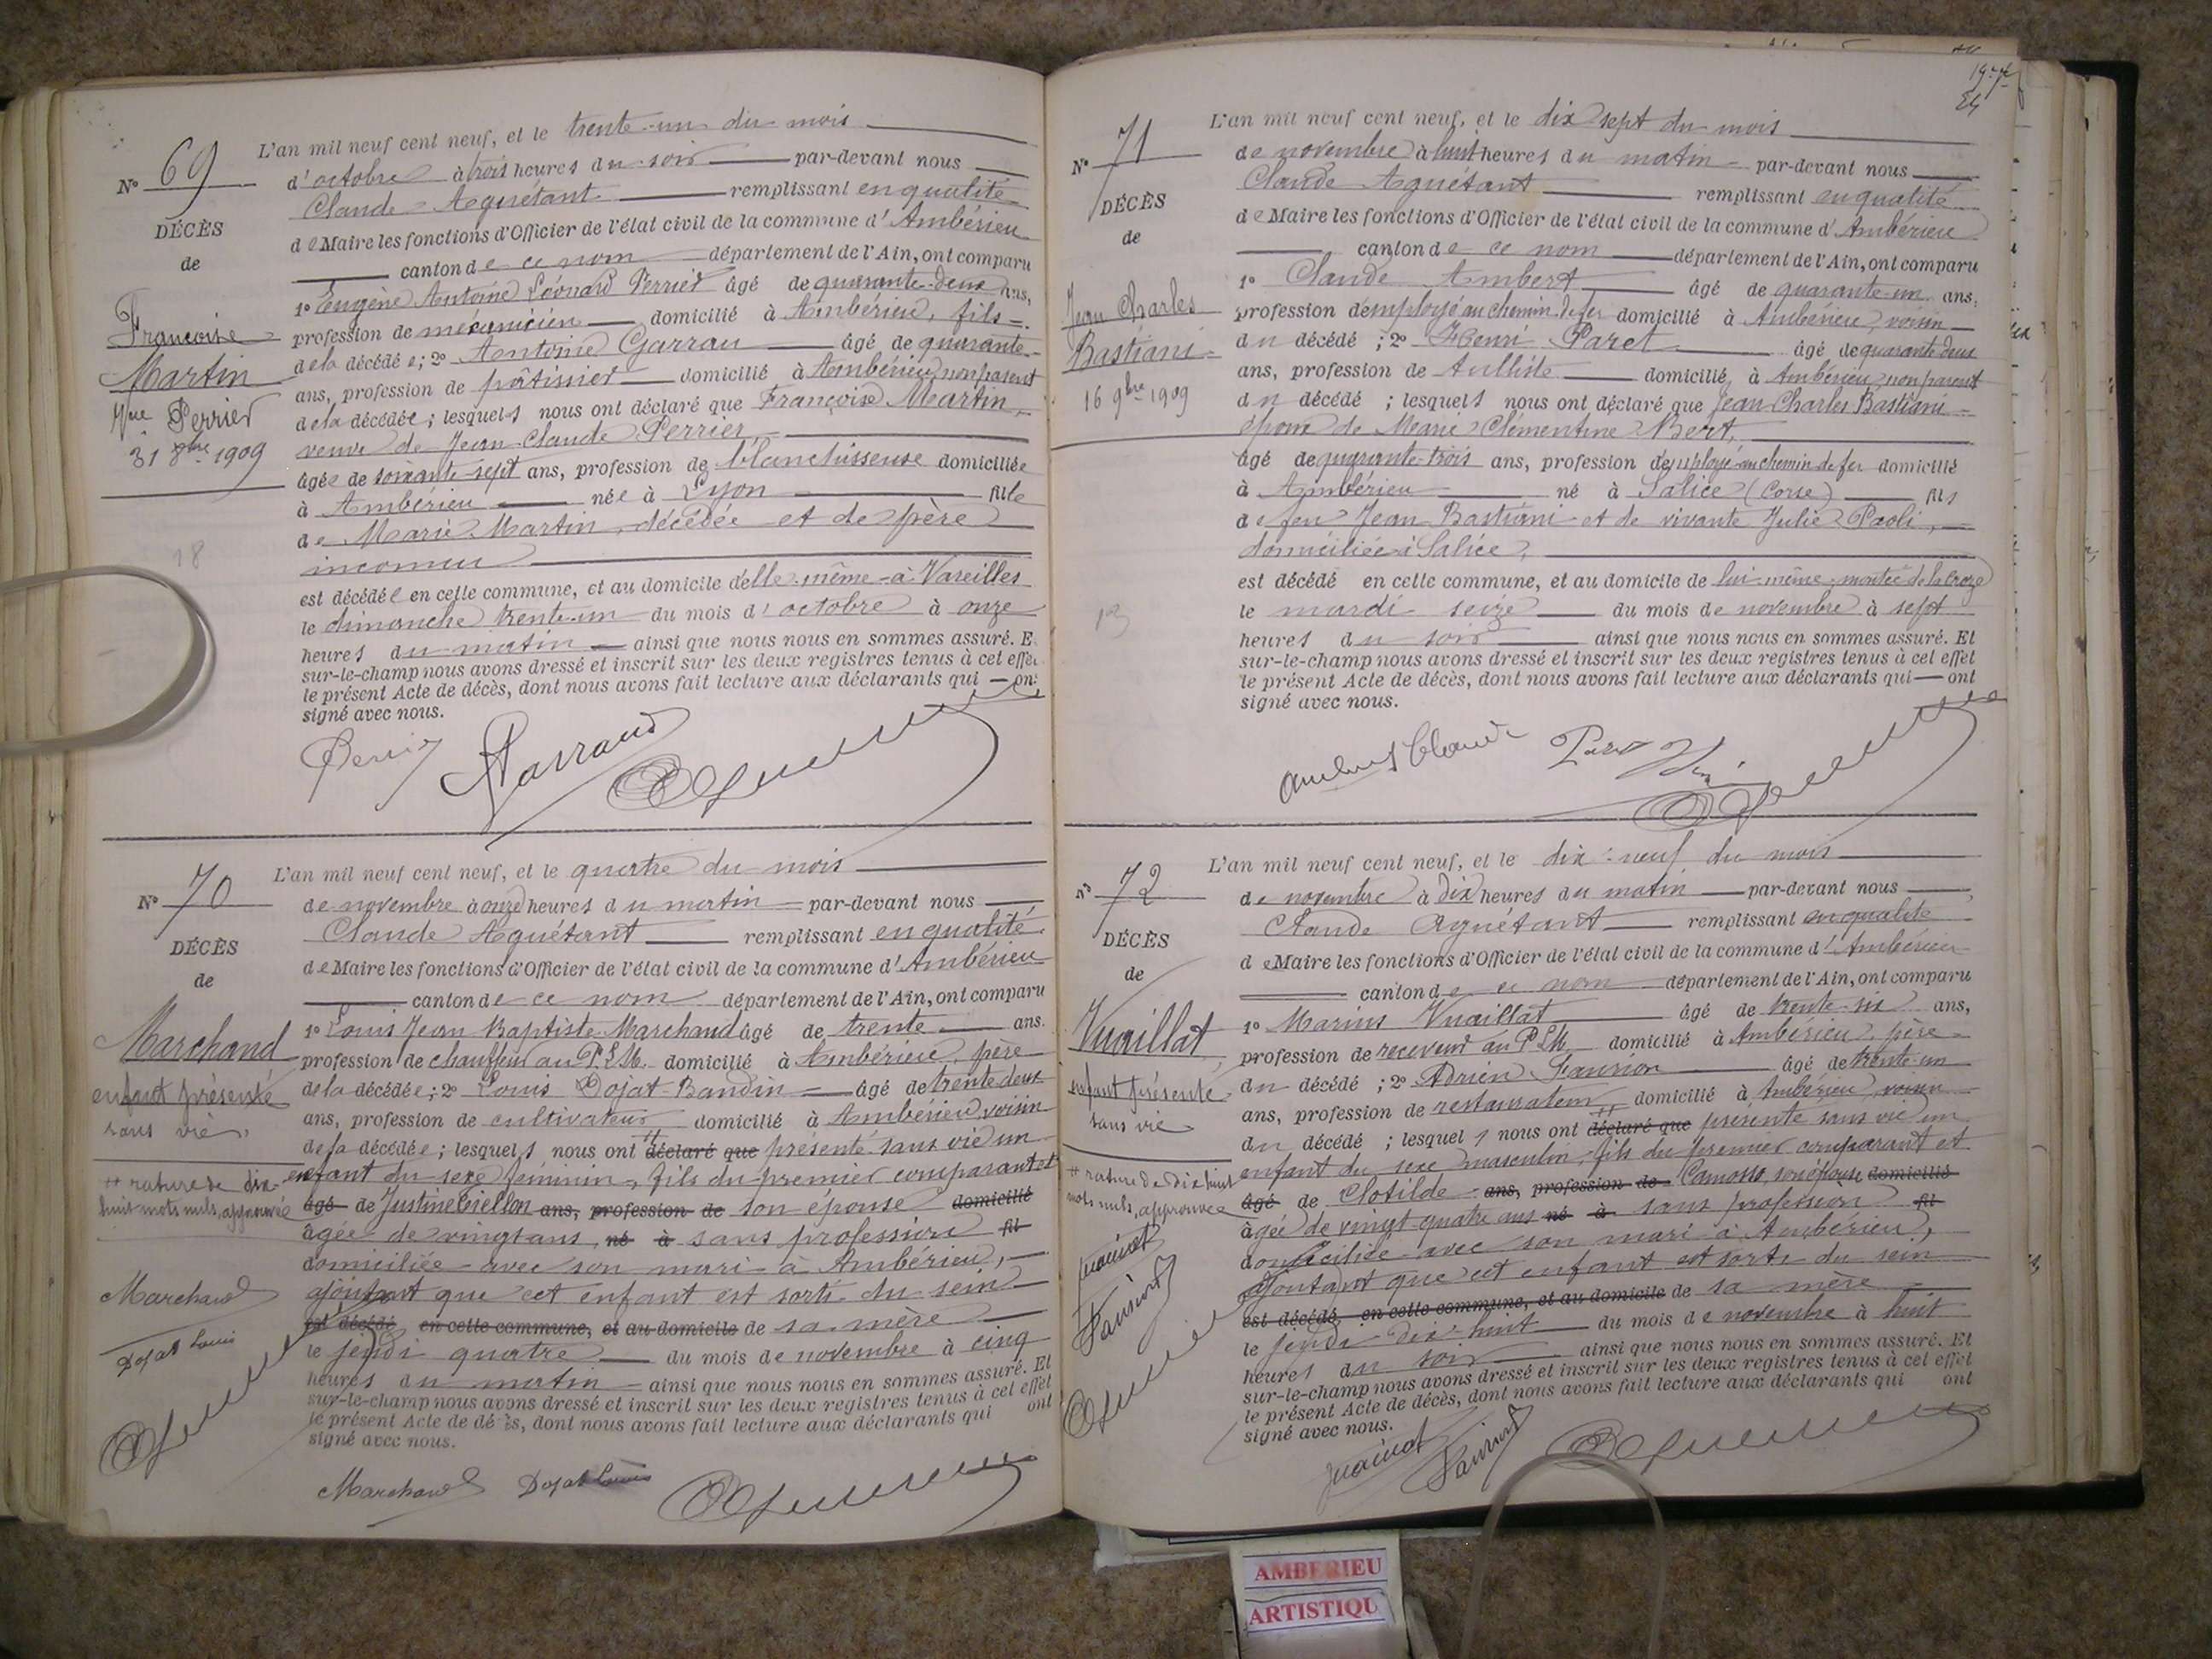 Nº 69
DÉCÈS
de
Françoise
Martin
Vve Perrier
31 8bre 1909
L'an mil neuf cent neuf, et le trente-un du mois
d'octobre à trois heures du soir par-devant nous
Claude Aguétant remplissant en qualité
de Maire les fonctions d'Officier de l'état civil de la commune d'Ambérieu
canton de ce nom département de l'Ain, ont comparu
1º Eugène Antoine Léonard Perrier âgé de quarante-deux ans,
profession de mécanicien domicilié à Ambérieu, fils
de la décédée; 2º Antoine Garrau âgé de quarante
ans, profession de pâtissier domicilié à Ambérieu, non parent
de la décédée; lesquels nous ont déclaré que Françoise Martin,
veuve de Jean-Claude Perrier
âgée de soixante-sept ans, profession de blanchisseuse domiciliée
à Ambérieu née à Lyon fille
de Marie Martin, décédée et de père
inconnu
est décédée en cette commune, et au domicile d'elle-même à Vareilles
le dimanche trente-un du mois d'octobre à onze
heures du matin ainsi que nous nous en sommes assuré. E
sur-le-champ nous avons dressé et inscrit sur les deux registres tenus à cet effet
le présent Acte de décès, dont nous avons fait lecture aux déclarants qui ont
signé avec nous.
18
Nº 70
DÉCÈS
de
Marchand
enfant présenté
sans vie
# rature de dix-
huit mots nuls, approuvée
Marchand
Dojat Louis
L'an mil neuf cent neuf, et le quatre du mois
de novembre à onze heures du matin par-devant nous
Claude Aguétant remplissant en qualité
de Maire les fonctions d'Officier de l'état civil de la commune d'Ambérieu
canton de ce nom département de l'Ain, ont comparu
1º Louis Jean Baptiste Marchand âgé de trente ans.
profession de chauffeur au P.L.M. domicilié à Ambérieu, père
de la décédée; 2º Louis Dojat-Baudin âgé de trente deux
ans, profession de cultivateur domicilié à Ambérieu, voisin
de la décédée; lesquels nous ont # déclaré que présenté sans vie un
enfant du sexe féminin, fils du premier comparant et
âgé de Justine ans, profession de son épouse domicilié
âgée de vingt ans, né à sans profession fil
domiciliée avec son mari à Ambérieu,
ajoutant que cet enfant est sorti du sein
est décédé en cette commune, et au domicile de sa mère
le jeudi quatre du mois de novembre à cinq
heures du matin ainsi que nous nous en sommes assuré. Et
sur-le-champ nous avons dressé et inscrit sur les deux registres tenus à cet effet
le présent Acte de décès, dont nous avons fait lecture aux déclarants qui ont
signé avec nous.
Marchand Dojat Louis
24
Nº 71
DÉCÈS
de
Jean Charles
Bastiani
16 9bre 1909
L'an mil neuf cent neuf, et le dix sept du mois
de novembre à huit heures du matin par-devant nous
Claude Aguétant remplissant en qualité
de Maire les fonctions d'Officier de l'état civil de la commune d'Ambérieu
canton de ce nom département de l'Ain, ont comparu
1º Claude Ambert âgé de quarante-un ans,
profession d'employé au chemin de fer domicilié à Ambérieu, voisin
du décédé; 2º Henri Paret âgé de quarante deux
ans, profession de tulliste domicilié à Ambérieu, non parent
du décédé; lesquels nous ont déclaré que Jean-Charles Bastiani
époux de Marie Clémentine Bert,
âgé de quarante-trois ans, profession d'employé au chemin de fer domicilié
à Ambérieu né à Salice (Corse) fils
de feu Jean Bastiani et de vivante Julie Paoli,
domiciliée à Salice,
est décédé en cette commune, et au domicile de lui-même, montée de la Croze
le mardi seize du mois de novembre à sept
heures du soir ainsi que nous nous en sommes assuré. Et
sur-le-champ nous avons dressé et inscrit sur les deux registres tenus à cet effet
le présent Acte de décès, dont nous avons fait lecture aux déclarants qui ont
signé avec nous.
13
Ambert Claude
Nº 72
DÉCÈS
de
Vuaillat
enfant présenté
sans vie
# rature de dix huit
mots nuls, approuvée
L'an mil neuf cent neuf, et le dix-neuf du mois
de novembre à dix heures du matin par-devant nous
Claude Aguétant remplissant en qualité
de Maire les fonctions d'Officier de l'état civil de la commune d'Ambérieu
canton de ce nom département de l'Ain, ont comparu
1º Marius Vuaillat âgé de trente-six ans,
profession de receveur au P.L.M. domicilié à Ambérieu, père
du décédé; 2º Adrien Faurion âgé de trente-un
ans, profession de restaurateur domicilié à Ambérieu, voisin
du décédé; lesquels nous ont # déclaré que présenté sans vie un
enfant du sexe masculin, fils du premier comparant et
âgé de Clotilde ans, profession de Camosso, son épouse domicilié
âgée de vingt quatre ans né à sans profession fil
domiciliée avec son mari à Ambérieu,
ajoutant que cet enfant est sorti du sein
est décédé, en cette commune, et au domicile de sa mère
le jeudi dix-huit du mois de novembre à huit
heures du soir ainsi que nous nous en sommes assuré. Et
sur-le-champ nous avons dressé et inscrit sur les deux registres tenus à cet effet
le présent Acte de décès, dont nous avons fait lecture aux déclarants qui ont
signé avec nous.
AMBERIEU
ARTISTIQU